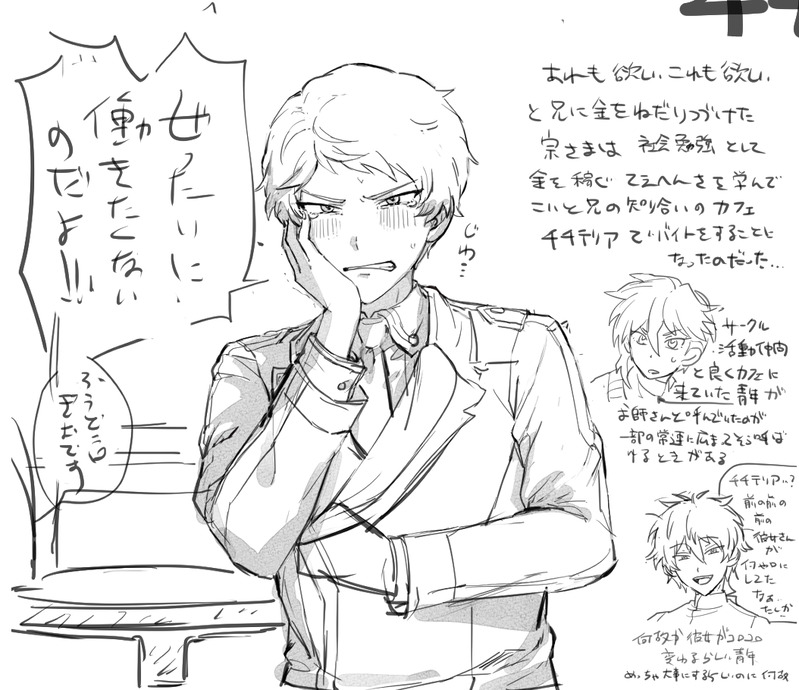 ぜったいに
働きたくない
のだよ!!!
じわ…
あれも欲しい これも欲しい
と兄に金をねだりつづけた
宗さまは 社会勉強として
金を稼ぐ てえへんさを学んで
こいと兄の知り合いのカフェ
チチテリアでバイトをすることに
なったのだった…
サークル
活動仲間
と良くカフェに
来ていた青年が
お師さんと呼んでいたのが
一部の常連に広まってそう呼ば
れるときがある
チチテリア…?
前の前の
前の
彼女さん
が
何や口に
してた
なぁ…
たしか
何故か彼女がコロコロ
変わるらしい青年
めっちゃ大事にするらしいのに何故